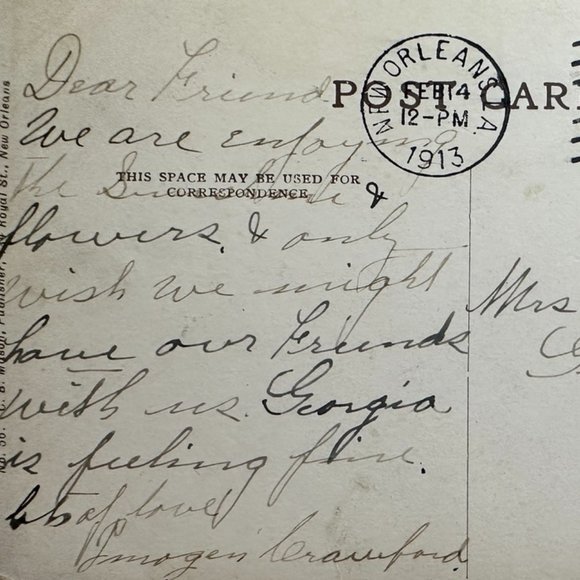 Dear Friend
We are enjoying
the Sunshine &
flowers, & only
wish we might
have our Friends
with us. Georgia
is feeling fine.
lots of love
Imogen Crawford.
THIS SPACE MAY BE USED FOR
CORRESPONDENCE
POST CAR
NEW ORLEANS, LA.
FEB 14
12-PM
1913
Mrs
Publisher, Royal St., New Orleans